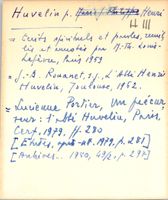 Huvelin p. Henri
H III
= Écrits spirituels et paroles, recueil-
lis et annotés par M.-Th. Louis-
Lefebvre, Paris 1959
= J.-B. Rouanet, s.j., L'Abbé Henri
Huvelin, Toulouse, 1962.
= Lucienne Portier, Un précur-
seur: l'abbé Huvelin, Paris,
Cerf, 1979, p. 280
[Études, 1979, p. 281]
[Archives.. 1980, 49/2, p. 290]